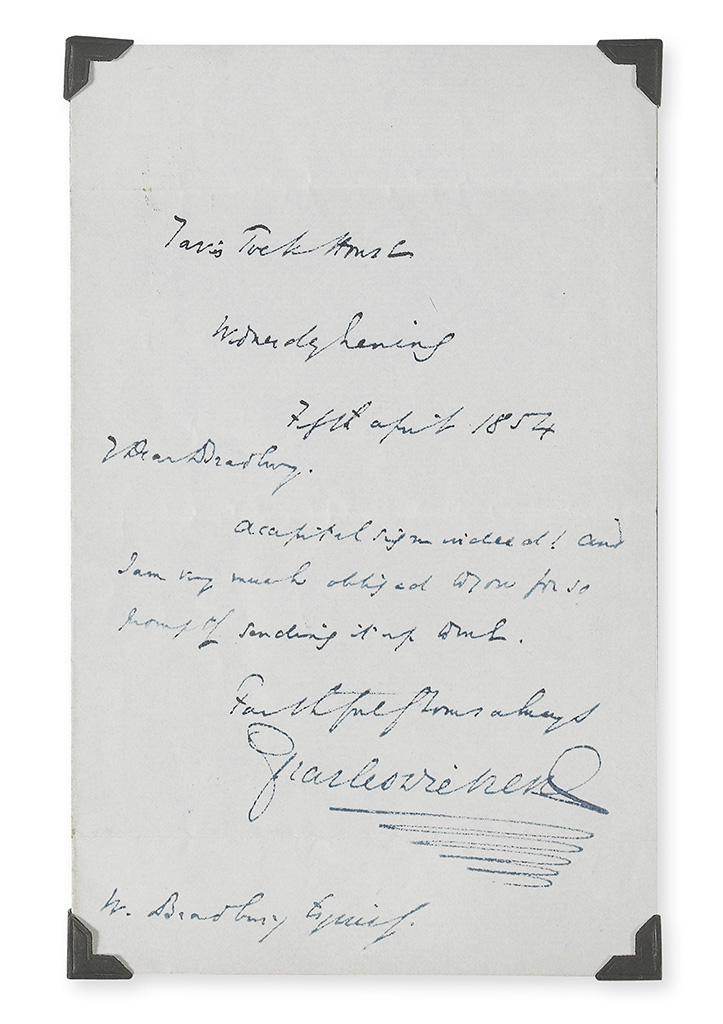 Tavistock House
Wednesday Evening
Fifth April 1854
My Dear Bradbury.
A capital sign indeed! And
I am very much obliged to you for so
promptly sending it up to me.
Faithfully Yours always
Charles Dickens
W. Bradbury Esquire.